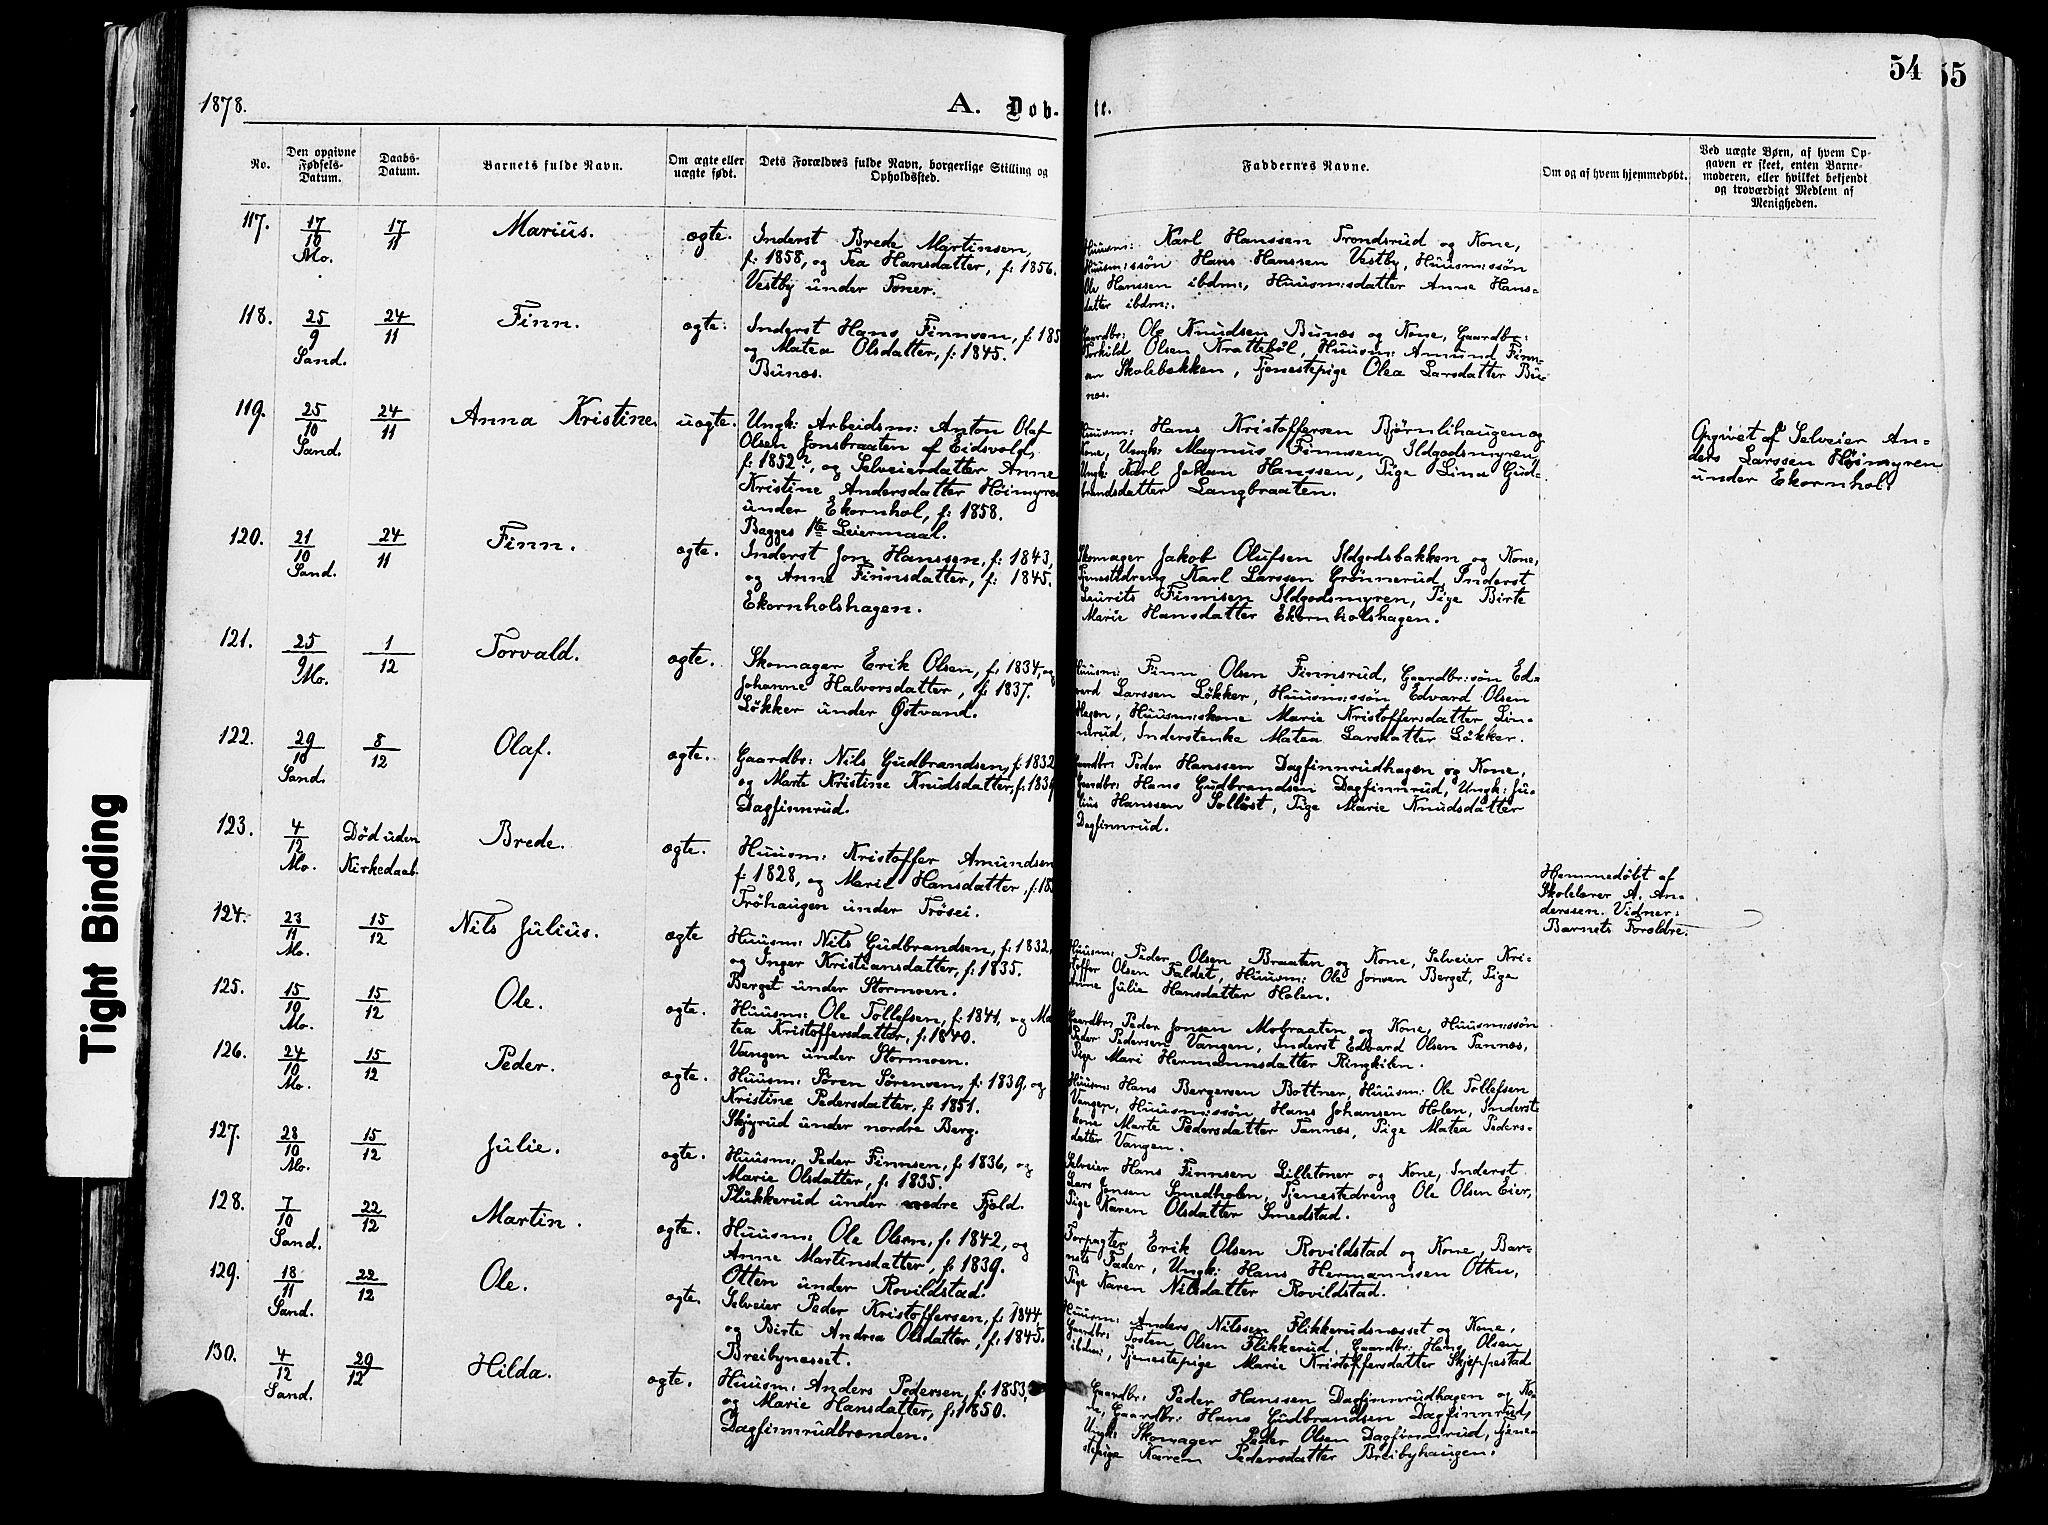 54
55
1878.
A. Døb-
te.
No.
Den opgivne Fødsels-Datum.
Daabs-Datum.
Barnets fulde Navn.
Om ægte eller uægte født.
Dets Forældres fulde Navn, borgerlige Stilling og Opholdssted.
Faddernes Navne.
Om og af hvem hjemmedøbt.
Ved uægte Børn, af hvem Op-
gaven er skeet, enten Barne-
moderen, eller hvilket bekjendt
og troværdigt Medlem af
Menigheden.
117. 17/10 Mo. 17/11 Marius. ægte.
Inderst Brede Martinsen,
f: 1858, og Tea Hansdatter, f: 1856.
Vestby under Toner.
Huusm: Karl Hanssen Trondsrud og Kone,
Huusm:ssøn Hans Hanssen Vestby, Huusm:ssøn
Ole Hanssen ibdm:, Huusm:sdatter Anne Hans-
datter ibdm:.
118. 25/9 Sand. 24/11 Finn. ægte:
Inderst Hans Finnsen, f: 185
og Matea Olsdatter, f: 1845.
Bunæs.
Gaardbr: Ole Knudsen Bunæs og Kone, Gaardbr:
Torkild Olsen Krattebøl, Huusm: Amund Finn-
sen Skolebakken, Tjenestepige Olea Larsdatter Bu-
næs.
119. 25/10 Sand. 24/11 Anna Kristine. uægte.
Ungk: Arbeidsm: Anton Olaf
Olsen Jonsbraaten af Eidsvold,
f: 1852?, og Selveierdatter Anne
Kristine Andersdatter Høimyren
under Ekornhol, f: 1858.
Begges 1te Leiermaal.
Huusm: Hans Kristoffersen Bjørnlihaugen og
Kone, Ungk: Magnus Finnsen Ildgodsmyren,
Ungk: Karl Johan Hanssen, Pige Lina Gud-
brandsdatter Langbraaten.
Opgivet af Selveier An-
ders Larssen Høimyren
under Ekornhol.
120. 21/10 Sand. 24/11 Finn. ægte.
Inderst Jon Hanssen, f: 1843,
og Anne Finnsdatter, f: 1845.
Ekornholshagen.
Skomager Jakob Olufsen Ildgodsbakken og Kone,
Tjenestedreng Karl Larssen Grønnerud, Inderst
Laurits Finnsen Ildgodsmyren, Pige Birte
Marie Hansdatter Ekornholshagen.
121. 25/9 Mo. 1/12 Torvald. ægte.
Skomager Erik Olsen, f: 1834, og
Johanne Halvorsdatter, f: 1837.
Løkker under Østvand.
Huusm: Finn Olsen Finnsrud, Gaardbr:søn Ed-
vard Larssen Løkker, Huusm:ssøn Edvard Olsen
Hagen, Huusm:skone Marie Kristoffersdatter Lin-
nerud, Inderstenke Matea Larsdatter Løkker.
122. 29/10 Sand. 8/12 Olaf. ægte.
Gaardbr: Nils Gudbrandsen, f: 1832
og Marte Kristine Knudsdatter, f: 1839
Dagfinnrud.
Gaardbr: Peder Hanssen Dagfinnrudhagen og Kone,
Gaardbr: Hans Gudbrandsen Dagfinnrud, Ungk: Ju-
lius Hanssen Solløst, Pige Marie Knudsdatter
Dagfinnrud.
123. 4/12 Mo. Død uden Kirkedaab. Brede. ægte.
Huusm: Kristoffer Amundsen
f: 1828, og Marie Hansdatter, f: 183
Trøhaugen under Trøsei.
Hjemmedøbt af
Skolelærer A. An-
derssen. Vidner:
Barnets Forældre.
124. 23/11 Mo. 15/12 Nils Julius. ægte
Huusm: Nils Gudbrandsen, f: 1832,
og Inger Kristiansdatter, f: 1835.
Berget under Stormoen.
Huusm: Peder Olsen Braaten og Kone, Selveier Kri-
stoffer Olsen Faldet, Huusm: Ole Jonsen Berget, Pige
Anne Julie Hansdatter Holen.
125. 15/10 Mo. 15/12 Ole. ægte.
Huusm: Ole Tollefsen, f: 1841, og Ma-
tea Kristoffersdatter, f: 1840.
Vangen under Stormoen.
Gaardbr: Peder Jonsen Mobraaten og Kone, Huusm:ssøn
Peder Pedersen Vangen, Inderst Edvard Olsen Tannæs,
Pige Mari Hermannsdatter Ringkilen.
126. 24/10 Mo. 15/12 Peder. ægte.
Huusm: Søren Sørensen, f: 1839, og
Kristine Pedersdatter, f: 1851.
Skjyrud under nordre Berg.
Huusm: Hans Bergersen Bottner, Huusm: Ole Tollefsen
Vangen, Huusm:ssøn Hans Johansen Holen, Inderst-
kone Marte Pedersdatter Tannæs, Pige Matea Peders-
datter Vangen.
127. 28/10 Mo. 15/12 Julie. ægte.
Huusm: Peder Finnsen, f: 1836, og
Marie Olsdatter, f: 1835.
Plukkerud under nedre Fjeld.
Selveier Hans Finnsen Lilletoner og Kone, Inderst
Lars Jonsen Smedholen, Tjenestedreng Ole Olsen Eier,
Pige Karen Olsdatter Smedstad.
128. 7/10 Sand. 22/12 Martin. ægte.
Huusm: Ole Olsen, f: 1842, og
Anne Martinsdatter, f: 1839.
Otten under Rovildstad.
Forpagter Erik Olsen Rovildstad og Kone, Bar-
nets Fader, Ungk: Hans Hermannsen Otten,
Pige Karen Nilsdatter Rovildstad.
129. 18/11 Sand. 22/12 Ole. ægte.
Selveier Peder Kristoffersen, f: 1844,
og Birte Andrea Olsdatter, f: 1845.
Breibynæsset.
Huusm: Anders Nilssen Flikkerudsnæsset og Kone,
Gaardbr: Tosten Olsen Flikkerud, Gaardbr: Hans Olsen
ibdm:, Tjenestepige Marie Kristoffersdatter Skjeppestad
130. 4/12 Sand. 29/12 Hilda. ægte.
Huusm: Anders Pedersen, f: 1853,
og Marie Hansdatter, f: 1850.
Dagfinnrudbrænden.
Gaardbr: Peder Hanssen Dagfinnrudhagen og Ko-
ne, Gaardbr: Hans Gudbrandsen Dagfinnrud,
Ungk: Skomager Peder Olsen Dagfinnrud, Tjene-
stepige Karen Pedersdatter Breibyhaugen.
Tight Binding